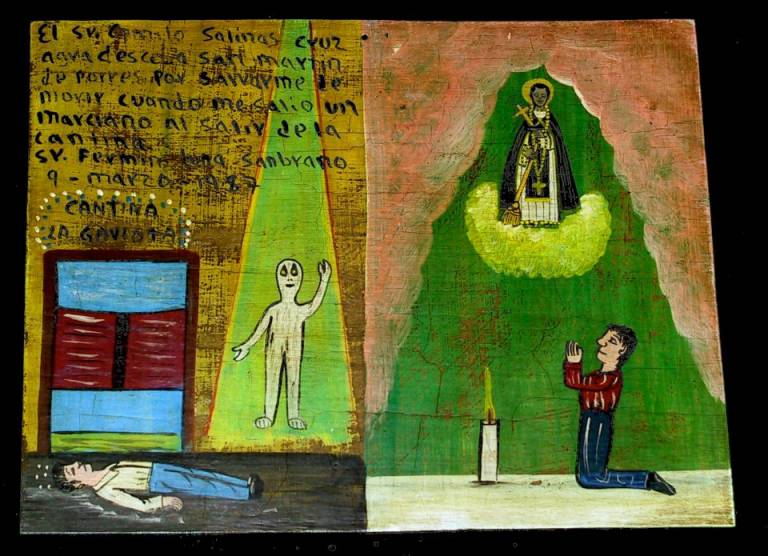 El sr. Camilo Salinas cruz
agradesco a san martin
de porres por salvarme de
morir cuando me salio un
marciano al salir de la
cantina
sr. Fermin Sanbrano
9 - marzo - 1987
CANTINA
LA GAVIOTA